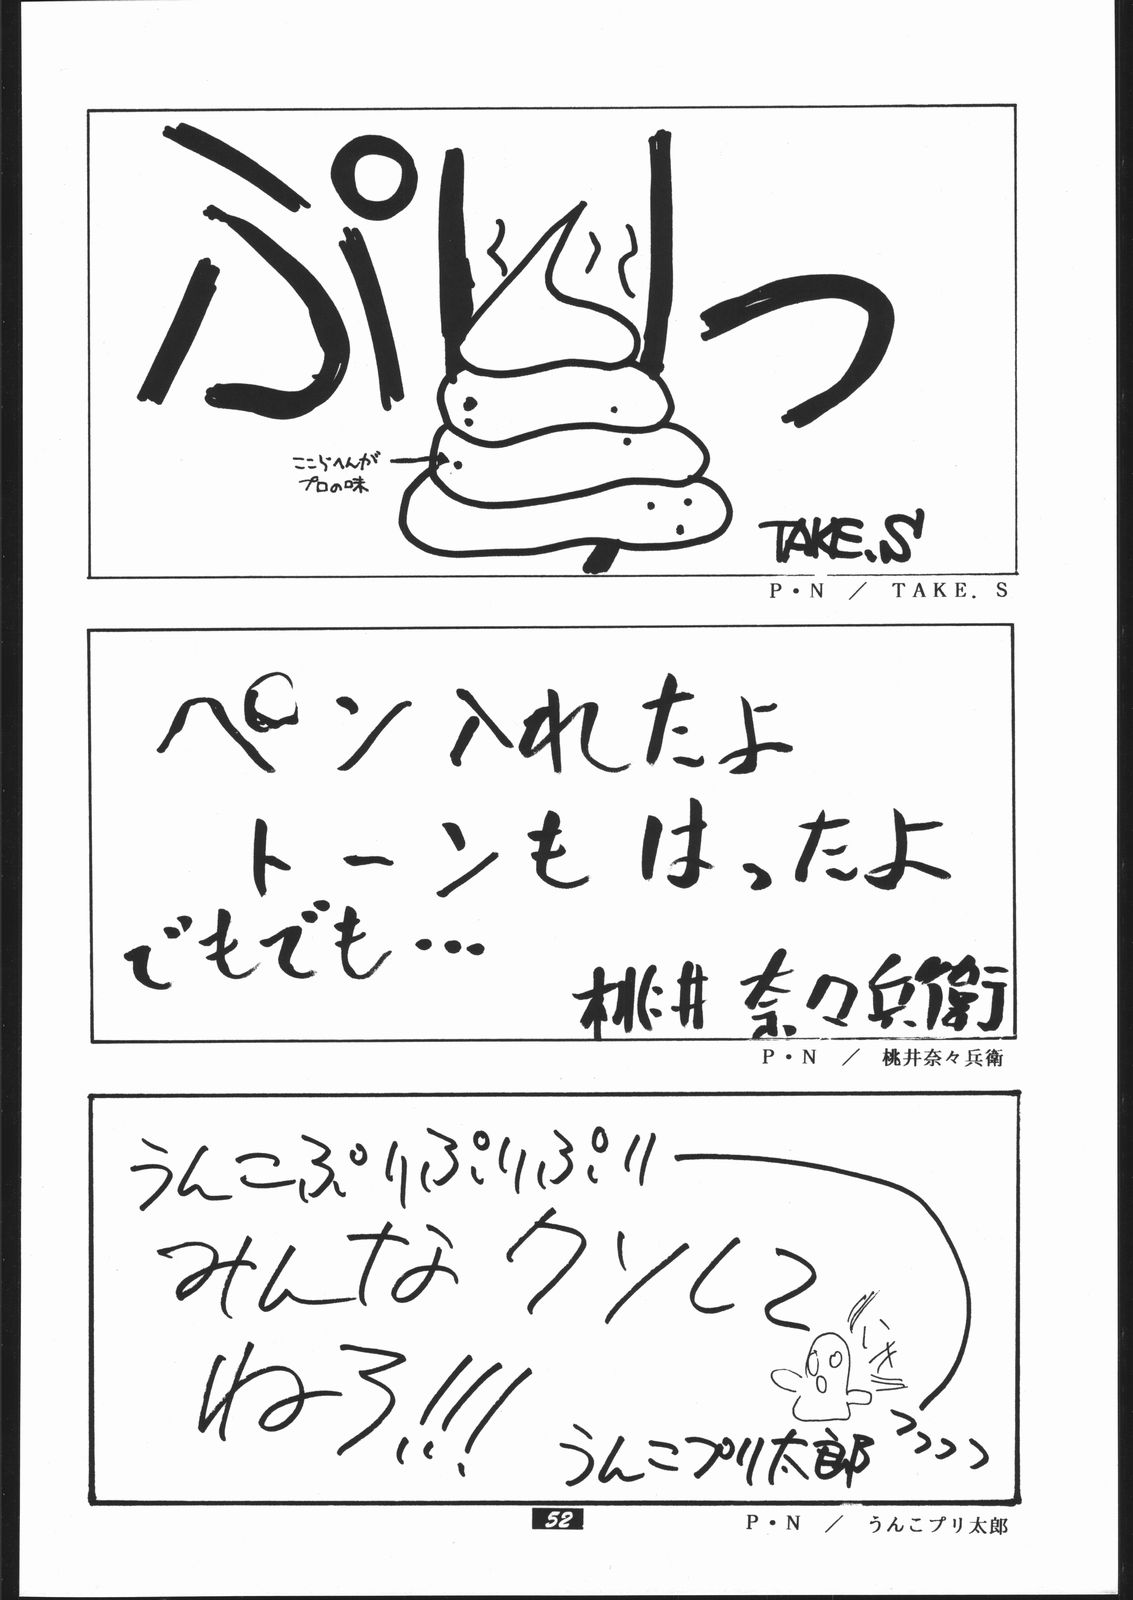 ぷりっ
ここらへんが
プロの味
TAKE.S
P・N ／ TAKE. S
ペン入れたよ
トーンもはったよ
でもでも…
桃井 奈々兵衛
P・N ／ 桃井奈々兵衛
うんこぷりぷりぷり
っっっっ
みんなクソして
ねろ!!!
いき
うんこプリ太郎
52
P・N ／ うんこプリ太郎